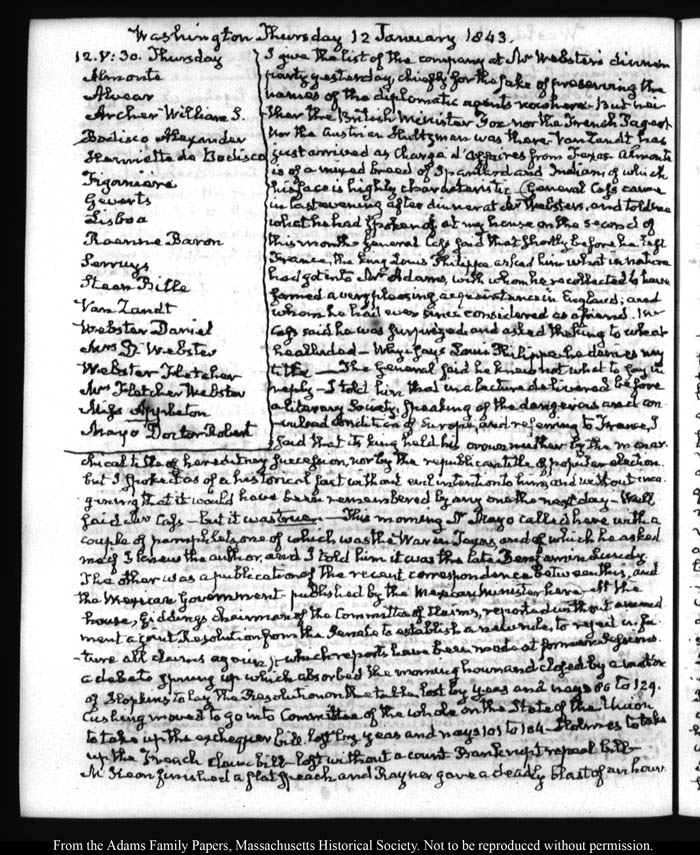 Washington Thursday 12 January 1843.
12. V: 30. Thursday
Almonte
Alvear
Archer William S.
Bodisco Alexander
Harriette de Bodisco
Figaniere
Gevers
Lisboa
Roenne Baron
Serruys
Steen Bille
Van Zandt
Webster Daniel
Mrs D. Webster
Webster Fletcher
Mrs Fletcher Webster
Miss Appleton
Mayo Doctor Robert
I give the list of the company at Mr Webster's dinner
party yesterday, chiefly for the sake of preserving the
names of the diplomatic agents now here. But nei-
ther the British Minister Fox nor the French Pageot
nor the Austrian Hultzman was there. Van Zandt has
just arrived as Chargé d'Affaires from Texas. Almonte
is of a mixed breed of Spaniard and Indian of which
his face is highly characteristic. General Cass came
in last evening after dinner at Mr Webster's, and told me
what he had spoken of at my house on the second of
this month. General Cass said that shortly before he left
France, the king Louis Philippe asked him what in nature
had got into Mr Adams, with whom he recollected to have
formed a very pleasing acquaintance in England; and
whom he had ever since considered as a friend. Mr
Cass said he was surprized and asked the king to what
he alluded — Why says Louis Philippe, he denies my
title. — The General said he knew not what to say in
reply — I told him that in a lecture delivered before
a literary Society, speaking of the dangerous and con-
vulsed condition of Europe, and referring to France, I
said that its king held his crown neither by the monar-
chical title of hereditary succession, nor by the republican title of popular election.
but I spoke it as of a historical fact without evil intention to him, and without ima-
gining that it would have been remembered by any one the next day — Well
said Mr Cass — but it was true. — This morning Dr Mayo called here with a
couple of pamphlets, one of which was the War in Texas, and of which he asked
me if I knew the author, and I told him it was the late Benjamin Lundy.
The other was a publication of the recent correspondence between this, and
the Mexican Government published by the Mexican Minister here. At the
house, Giddings chairman of the Committee of Claims, reported without amend-
ment a joint Resolution from the Senate to establish a new rule, to reject in fu-
ture all claims against which reports have been made at former Sessions.
a debate sprung up which absorbed the morning hour and closed by a motion
of Hopkins to lay the Resolution on the table, lost by yeas and nays 86 to 129.
Cushing moved to go into Committee of the whole on the State of the Union
to take up the exchequer bill. lost by yeas and nays 101 to 104 — Holmes to take
up the French claims bill — lost without a count. Bankrupt repeal bill —
McKeon finished a flat speech and Rayner gave a deadly blast of an hour.
From the Adams Family Papers, Massachusetts Historical Society. Not to be reproduced without permission.